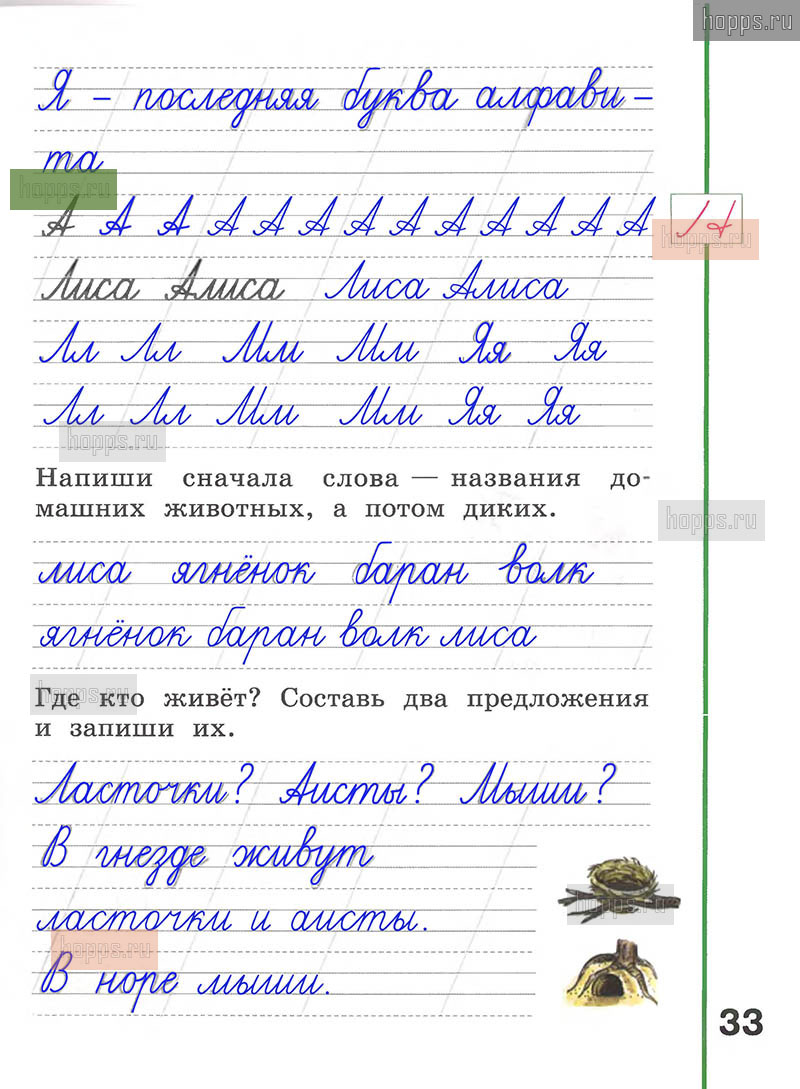 hopps.ru
Я – последняя буква алфави–
та
hopps.ru
А А А А А А А А А А А А А
hopps.ru
Лиса Алиса Лиса Алиса
Лл Лл Мм Мм Яя Яя
Лл Лл Мм Мм Яя Яя
hopps.ru
Напиши сначала слова — названия до-
машних животных, а потом диких.
hopps.ru
лиса ягнёнок баран волк
ягнёнок баран волк лиса
hopps.ru
Где кто живёт? Составь два предложения
и запиши их.
Ласточки? Аисты? Мыши?
В гнезде живут
hopps.ru
ласточки и аисты.
hopps.ru
В норе мыши.
33